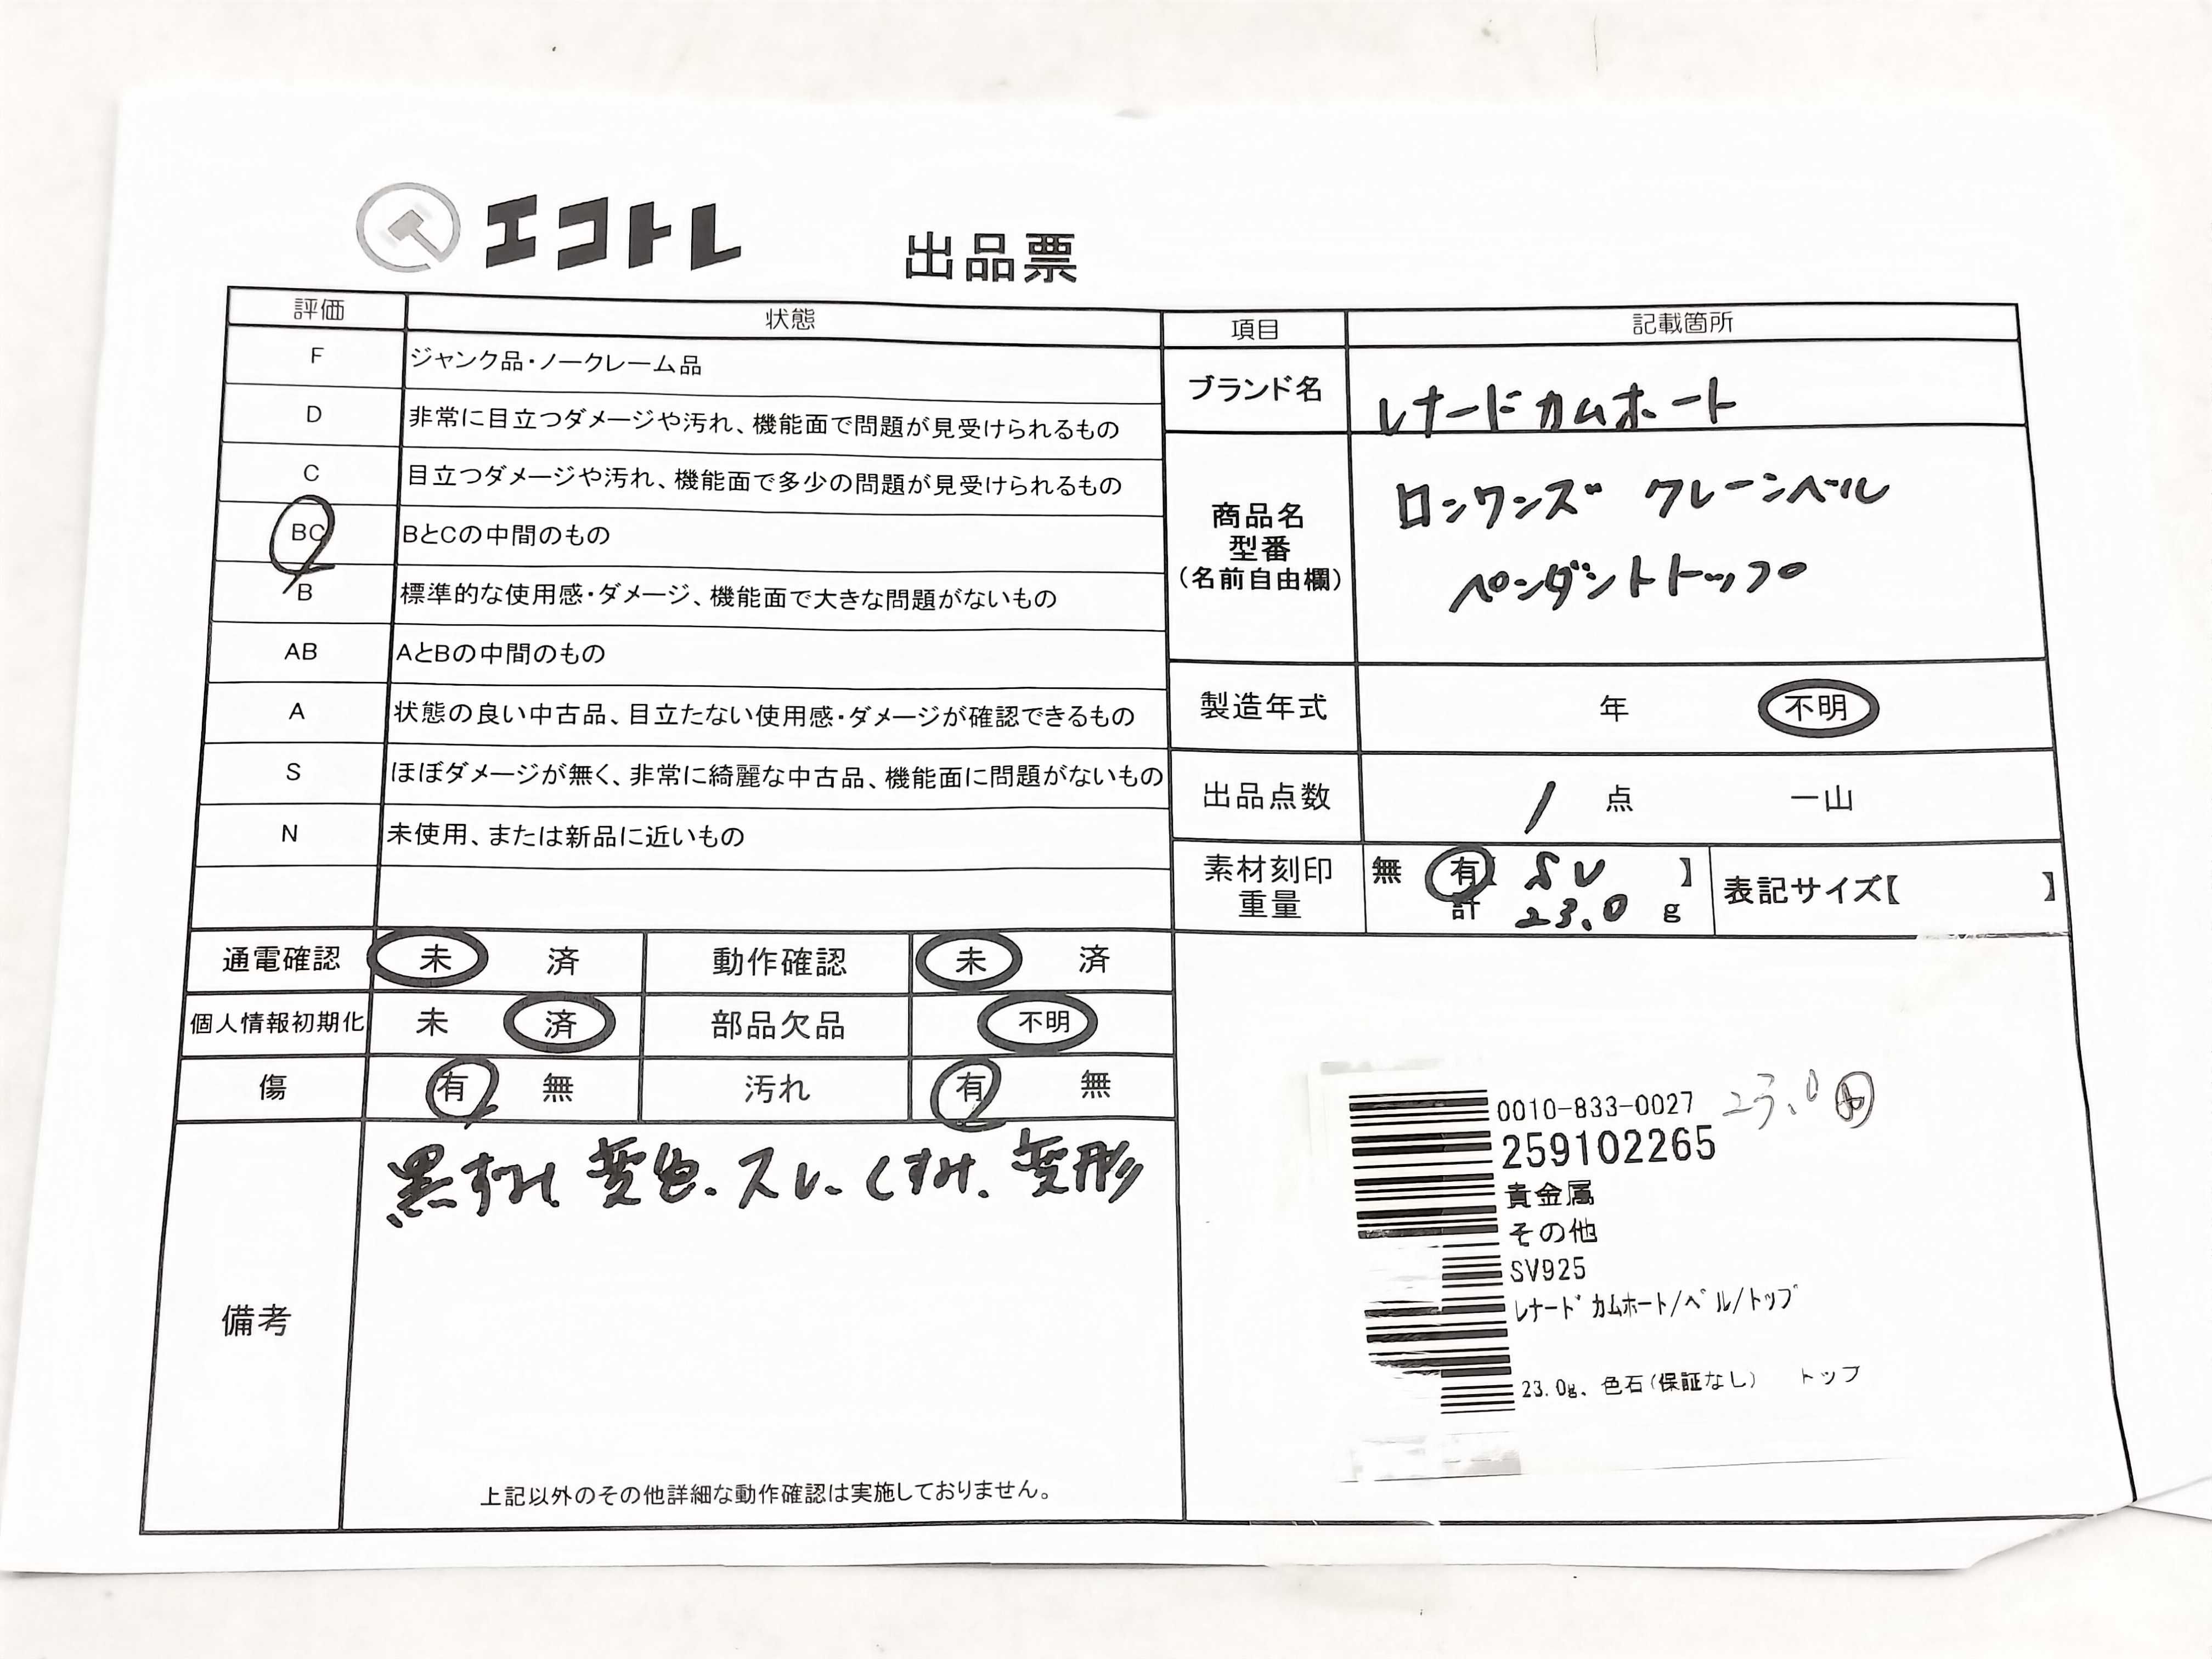 エコトレ 出品票
評価 状態
F ジャンク品・ノークレーム品
D 非常に目立つダメージや汚れ、機能面で問題が見受けられるもの
C 目立つダメージや汚れ、機能面で多少の問題が見受けられるもの
BC BとCの中間のもの
B 標準的な使用感・ダメージ、機能面で大きな問題がないもの
AB AとBの中間のもの
A 状態の良い中古品、目立たない使用感・ダメージが確認できるもの
S ほぼダメージが無く、非常に綺麗な中古品、機能面に問題がないもの
N 未使用、または新品に近いもの
通電確認 未 済 動作確認 未 済
個人情報初期化 未 済 部品欠品 不明
傷 有 無 汚れ 有 無
備考
黒ずみ 変色. スレ. くすみ. 変形
上記以外のその他詳細な動作確認は実施しておりません。
項目 記載箇所
ブランド名 レナードカムホート
商品名
型番
(名前自由欄)
ロンワンズ クレーンベル
ペンダントトップ
製造年式 年 不明
出品点数 1 点 一山
素材刻印 無 有【 SV 】
重量 計 23.0 g
表記サイズ【 】
0010-833-0027 23.0
259102265
貴金属
その他
SV925
レナードカムホート/ベル/トップ
23.0g、色石(保証なし) トップ